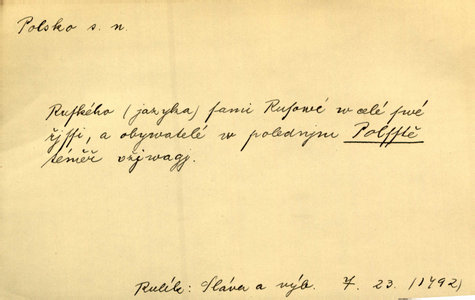 Polsko s. n.
Ruského (jazyka) sami Rusowé w celé swé
řjssi, a obywatelé w polednjm Polsstě
téměř vžjwagj.
Rulík: Sláva a výb. 7. 23. (1792)